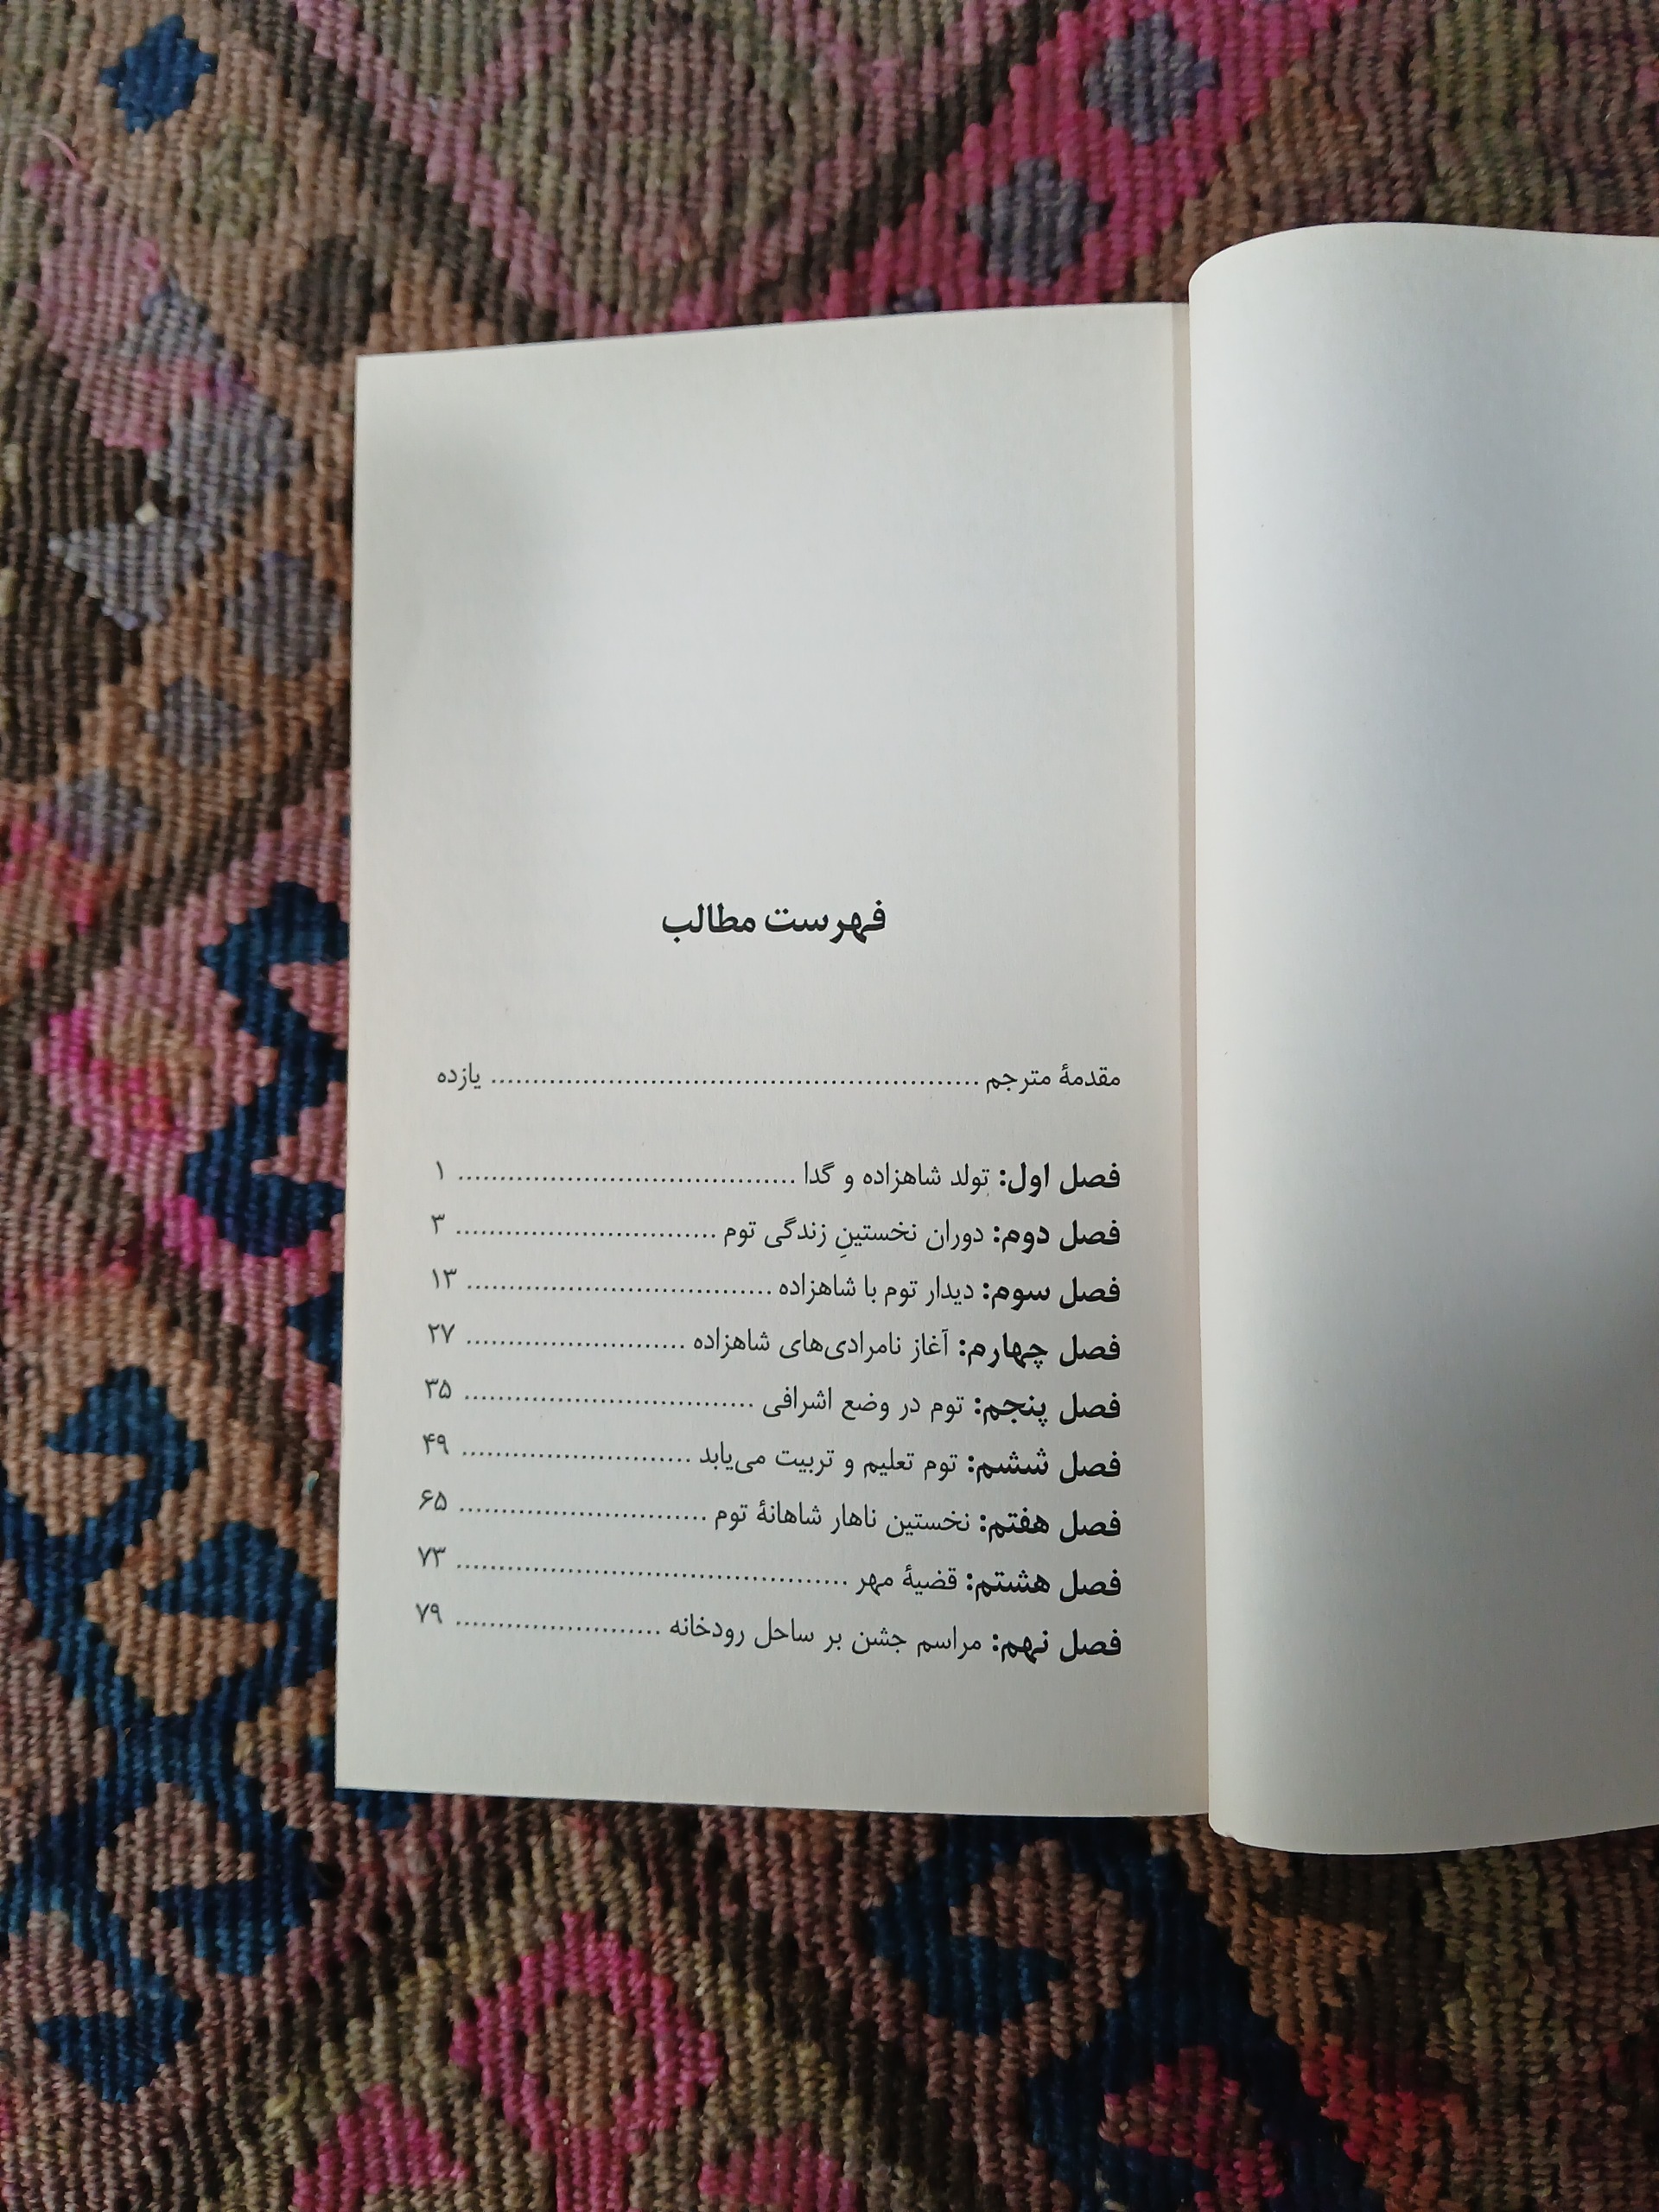 فهرست مطالب
مقدمهٔ مترجم ........................................................ یازده
فصل اول: تولد شاهزاده و گدا ........................................ ۱
فصل دوم: دوران نخستینِ زندگی توم ............................... ۳
فصل سوم: دیدار توم با شاهزاده .................................... ۱۳
فصل چهارم: آغاز نامرادی‌های شاهزاده .......................... ۲۷
فصل پنجم: توم در وضع اشرافی .................................. ۳۵
فصل ششم: توم تعلیم و تربیت می‌یابد ........................... ۴۹
فصل هفتم: نخستین ناهار شاهانهٔ توم ............................. ۶۵
فصل هشتم: قضیهٔ مهر .............................................. ۷۳
فصل نهم: مراسم جشن بر ساحل رودخانه ........................ ۷۹